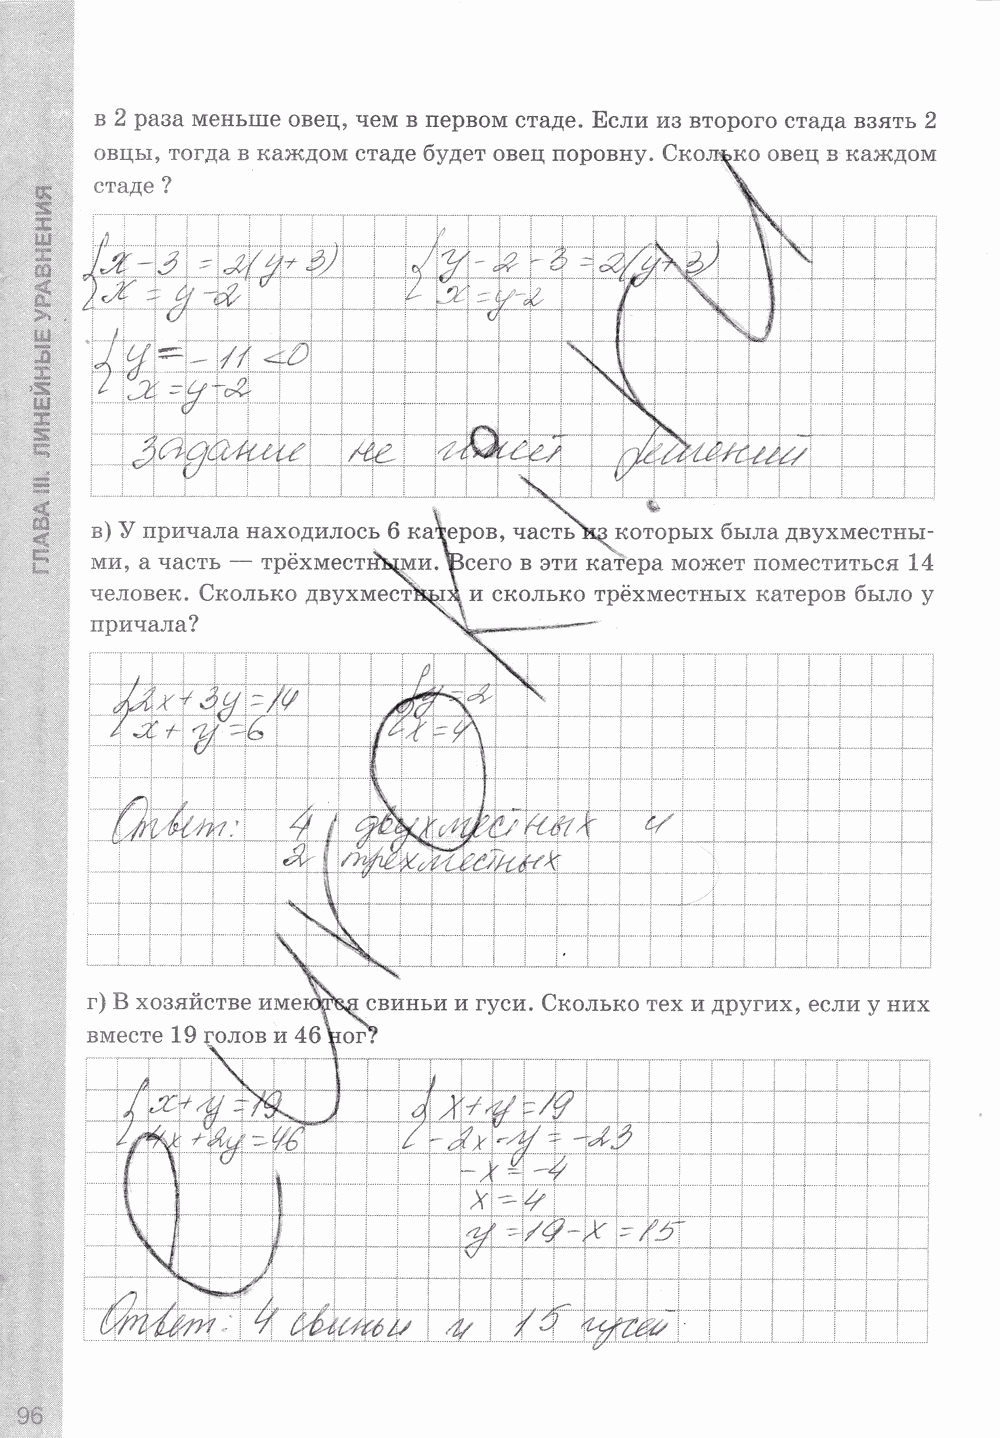 в 2 раза меньше овец, чем в первом стаде. Если из второго стада взять 2
овцы, тогда в каждом стаде будет овец поровну. Сколько овец в каждом
стаде ?
x - 3 = 2(y + 3)
x = y - 2
y - 2 - 3 = 2(y + 3)
x = y - 2
y = - 11 < 0
x = y - 2
задание не имеет решений
в) У причала находилось 6 катеров, часть из которых была двухместны-
ми, а часть — трёхместными. Всего в эти катера может поместиться 14
человек. Сколько двухместных и сколько трёхместных катеров было у
причала?
2x + 3y = 14
x + y = 6
y = 2
x = 4
Ответ: 4 двухместных и
2 трёхместных
г) В хозяйстве имеются свиньи и гуси. Сколько тех и других, если у них
вместе 19 голов и 46 ног?
x + y = 19
4x + 2y = 46
x + y = 19
- 2x - y = - 23
- x = - 4
x = 4
y = 19 - x = 15
Ответ: 4 свиньи и 15 гусей
ГЛАВА III. ЛИНЕЙНЫЕ УРАВНЕНИЯ
96